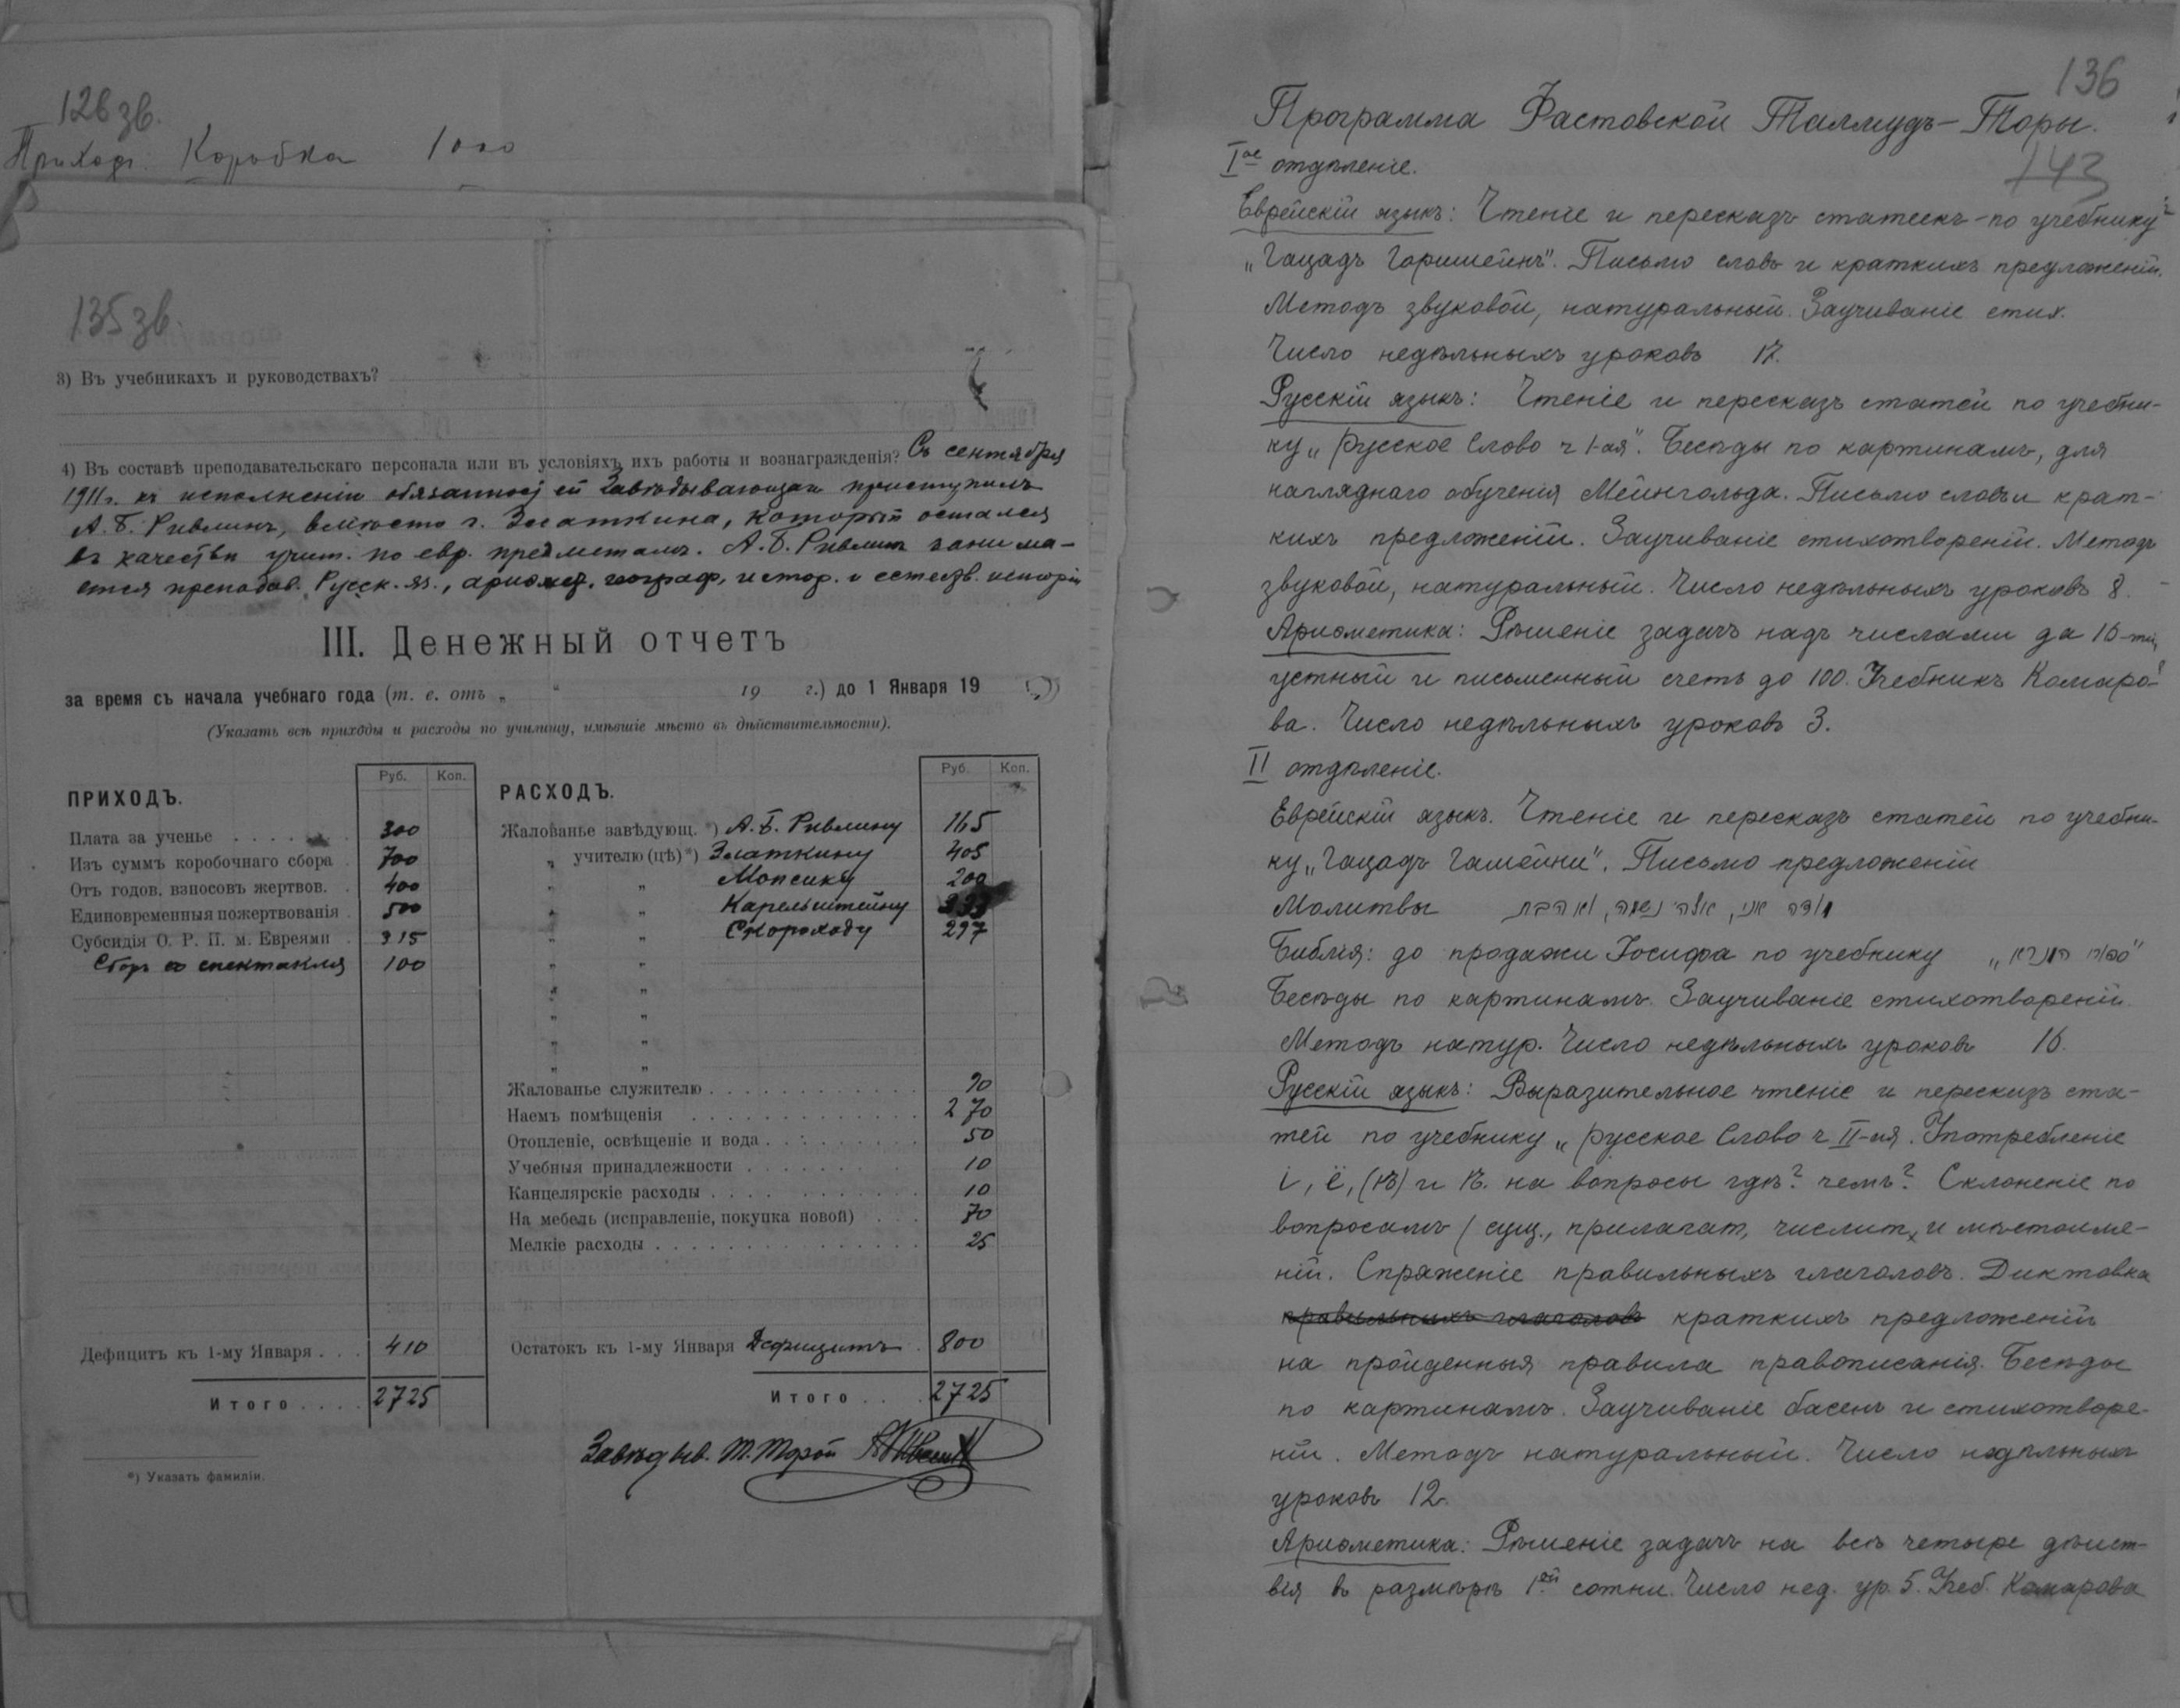 126 зв.
Приходъ: Коробка 1000
135 зв.
3) Въ учебникахъ и руководствахъ?
4) Въ составѣ преподавательскаго персонала или въ условіяхъ ихъ работы и вознагражденія? Съ сентября
1911 г. къ исполненію обязанностей Завѣдывающаго приступилъ
А. Б. Ривлинъ, вмѣсто г. Златкина, который остался
въ качествѣ учит. по евр. предметамъ. А. Б. Ривлинъ занима-
ется преподав. Русск. яз., ариѳмет. географ, истор. и естеств. исторіи
III. Денежный отчетъ
за время съ начала учебнаго года (т. е. отъ „ “ 19 г.) до 1 Января 19
(Указать всѣ приходы и расходы по училищу, имѣвшіе мѣсто въ дѣйствительности).
ПРИХОДЪ. Руб. Коп.
Плата за ученье 300
Изъ суммъ коробочнаго сбора 700
Отъ годов. взносовъ жертвов. 400
Единовременныя пожертвованія 500
Субсидія О. Р. П. м. Евреями 315
Сборъ со спектакля 100
Дефицитъ къ 1-му Января 410
Итого 2725
*) Указать фамиліи.
РАСХОДЪ. Руб. Коп.
Жалованье завѣдующ. *) А. Б. Ривлину 165
„ учителю (цѣ) *) Златкину 405
„ „ Мопсику 200
„ „ Карельштейну 333
„ „ Скороходу 297
„ „
„ „
„ „
„ „
„ „
Жалованье служителю 90
Наемъ помѣщенія 270
Отопленіе, освѣщеніе и вода 50
Учебныя принадлежности 10
Канцелярскіе расходы 10
На мебель (исправленіе, покупка новой) 70
Мелкіе расходы 25
Остатокъ къ 1-му Января Дефицитъ 800
Итого 2725
Завѣдыв. Т. Торой
136
Программа Фастовской Талмудъ-Торы.
143
I ое отдѣленіе.
Еврейскій языкъ: Чтеніе и пересказъ статеекъ по учебнику
„Гацадъ Горишейнъ". Письмо словъ и краткихъ предложеній.
Методъ звуковой, натуральный. Заучиваніе стих.
Число недѣльныхъ уроковъ 17.
Русскій языкъ: Чтеніе и пересказъ статей по учебни-
ку „Русское Слово ч 1-ая". Бесѣды по картинамъ, для
нагляднаго обученія Мейнгольда. Письмо словъ и крат-
кихъ предложеній. Заучиваніе стихотвореній. Методъ
звуковой, натуральный. Число недѣльныхъ уроковъ 8.
Ариѳметика: Рѣшеніе задачъ надъ числами да 10-ти,
устный и письменный счетъ до 100. Учебникъ Комаро-
ва. Число недѣльныхъ уроковъ 3.
II отдѣленіе.
Еврейскій языкъ. Чтеніе и пересказъ статей по учебни-
ку „Гацадъ Гашейни". Письмо предложеній
Молитвы מודה אני, אלהי נשמה, ואהבת
Библія: до продажи Іосифа по учебнику
Бесѣды по картинамъ. Заучиваніе стихотвореній.
Методъ натур. Число недѣльныхъ уроковъ 16.
Русскій языкъ: Выразительное чтеніе и пересказъ ста-
тей по учебнику „Русское Слово ч II-ая. Употребленіе
і, ё, (ѣ) и ѣ. на вопросы гдѣ? чемъ? Склоненіе по
вопросамъ (сущ., прилагат, числит, и мѣстоиме-
ній. Спряженіе правильныхъ глаголовъ. Диктовка
правильныхъ глаголовъ краткихъ предложеній
на пройденныя правила правописанія. Бесѣды
по картинамъ. Заучиваніе басенъ и стихотворе-
ній. Методъ натуральный. Число недѣльныхъ
уроковъ 12.
Ариѳметика: Рѣшеніе задачъ на всѣ четыре дѣйст-
вія въ размѣрѣ 1ой сотни. Число нед. ур. 5. Учеб. Комарова